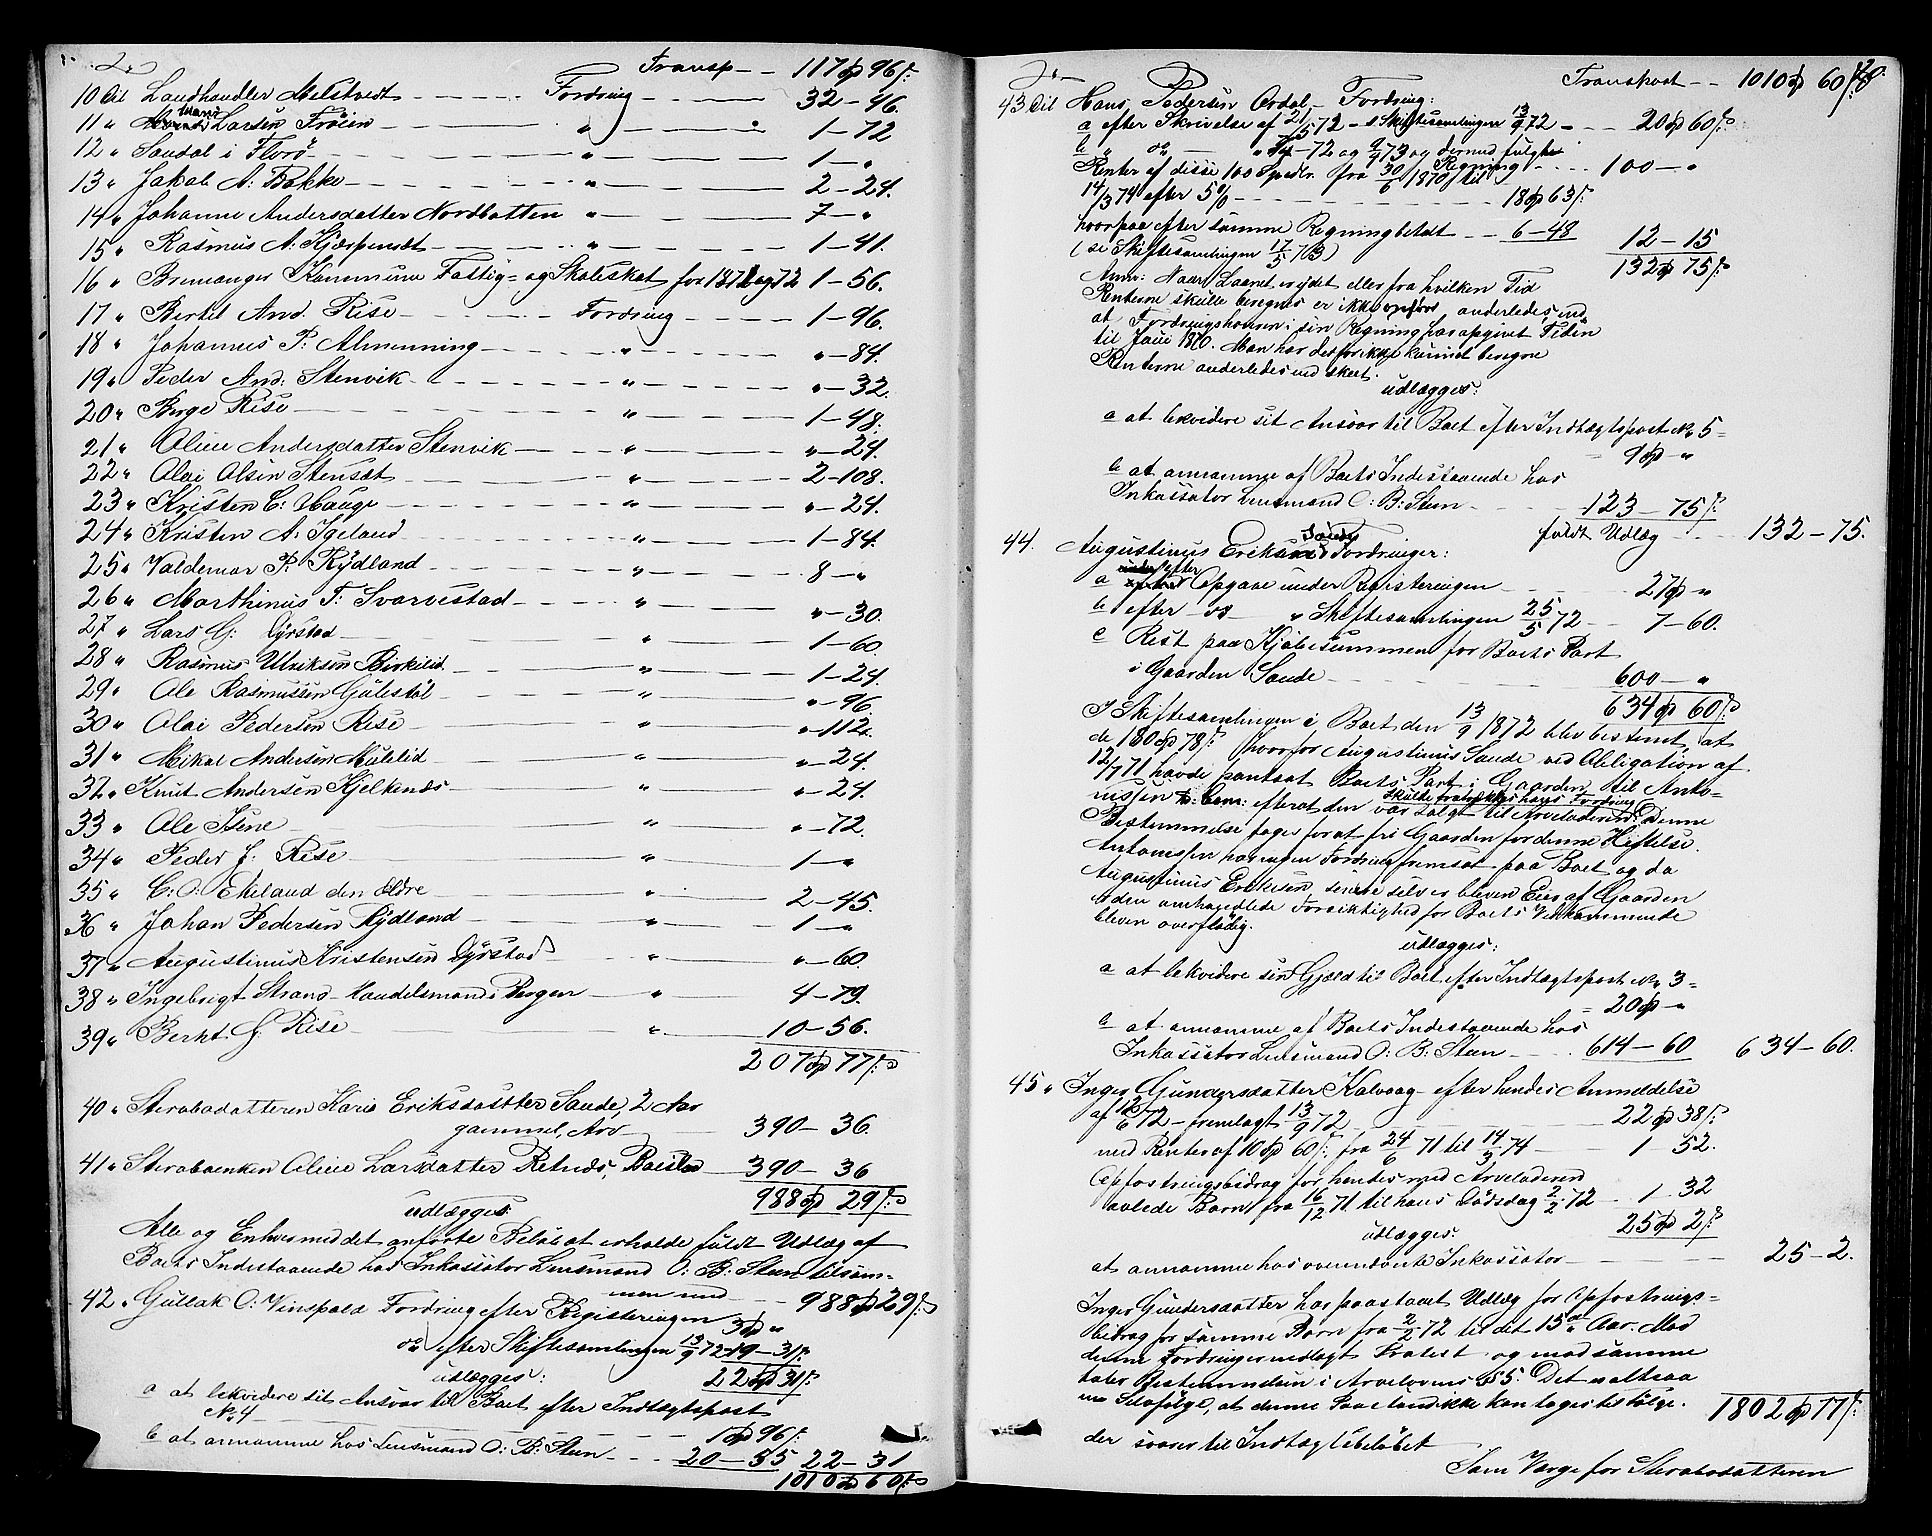 2
Transp — 117 Spd 96 s:
10 til Landhandler Melstvedt — Fordring — 32 — 96.
11 " Hans Larsen Frøien — " — 1 — 72
12 " Søndal i Florø — " — 1 — "
13 " Jakob A: Bakke — " — 2 — 24.
14 " Johanne Andersdatter Nordbotten " — 7 — "
15 " Rasmus A. Kjærpenset — " — 1 — 41.
16 " Bremanger Kommune Fattig- og Skoleskat for 1871 og 72 1 — 56.
17 " Bertil And. Rise — Fordring — 1 — 96.
18 " Johannes P. Almenning — " — " — 84.
19 " Peder And: Stenvik — " — " — 32.
20 " Børge Rise — " — 1 — 48.
21 " Oline Andersdatter Stenvik — " — " — 24.
22 " Olai Olsen Stenset — " — 2 — 108.
23 " Kristen C: Hauge — " — " — 24.
24 " Kristen A. Igeland — " — 1 — 84.
25 " Valdemar P. Rydland — " — 8 — "
26 " Marthinus T: Svarvestad — " — " — 30.
27 " Lars G: Gyrstad — " — 1 — 60
28 " Rasmus Ulriksen Birkelid — " — 1 — 24.
29 " Ole Rasmussen Gulestøl — " — " — 96
30 " Olai Pedersen Rise — " — " 112.
31 " Mikal Andersen Mulelid — " — " — 24.
32 " Knut Andersen Hjelkenes — " — " — 24.
33 " Ole Isene — " — " — 72.
34 " Peder J: Rise — " — 1 — "
35 " C: O: Ekeland den ældre — " — 2 — 45.
36 " Johan Pedersen Rydland — " — 1 — "
37 " Augustinus Kristensen Gyrstad — " — " — 60.
38 " Ingebrigt Strand — Handelsmand i Bergen — " — 4 — 79.
39 " Berht. J. Rise — " — 10 — 56.
207 Spd 77 s:
40 " Sterbodatteren Karie Eriksdatter Saude, 2 Aar
gammel, Arv — 390 — 36.
41 " Sterboenken Oline Larsdatter — 390 — 36
988 Spd 29 s:
udlægges:
Alle og Enhver med det anførte Beløb at erholde fuldt Udlæg af
Boets Indestaaende hos Inkassator Lensmand O: B: Steen tilsam-
men med — 988 Spd 29 s:
42 " Gullak O: Vinspold Fordring efter Registeringen
3 Spd "
do efter Skiftesamlingen 13/9 72 19 — 31 s:
22 Spd 31 s:
udlægges:
a at lekvidere sit Ansvar til Boet efter Indtægtspost
No 4 — 1 Spd 96 s:
b at annamme hos Lensmand O: B: Steen — 20 — 55 22 — 31
1010 Spd 60 s:
Transport — 1010 Spd 60 s:
43 til Hans Pedersen Ordal — Fordring:
a efter Skrivelse af 21/5 72 — Skiftesamlingen 13/9 72 — 20 Spd 60 s:
b " do — 72 og 73 og dermed fulgte
Regning — 100 — "
Renter af disse 100 Spdlr. fra 30/6 1870 til
14/3 74 efter 5 % — 18 Spd 63 s:
hvorpaa efter samme Regning betalt — 6 — 48 12 — 15
(se Skiftesamlingen 17/5 73) 132 Spd 75 s:
Anm: Naar Laanet er ydet eller fra hvilken Tid
Renterne skulle beregnes er ikke opført anderledes end
at Fordringshaveren i sin Regning har opgivet Tiden
til Juni 1870. Man har derfor ikke kunnet beregne
Renterne anderledes end skeet.
udlægges:
a at lekvidere sit Ansvar til Boet efter Indtægtspost No 5 =
9 Spd — "
b at annamme af Boets Indestaaende hos
Inkassator Lensmand O: B: Steen — 123 — 75 s:
fuldt Udlæg — 132 — 75.
44. Augustinus Eriksen Saude Fordringer:
a efter Opgave under Registeringen — 27 Spd "
b efter do " Skiftesamlingen 25/5 72 — 7 — 60.
c Rest paa Kjøbesummen for Boets Part
i Gaarden Saude — 600 — "
634 Spd 60 s:
I Skiftesamlingen i Boet den 13/9 1872 blev bestemt, at
de 180 Spd 78 s: hvorfor Augustinus Saude ved Obligation af
12/7 71 havde pantsat Boets Part i Gaarden til Anto-
nissen & Com: efterat den var solgt til Arveladeren skulle fratrækkes hans Fordring. Denne
Bestemmelse toges for at fri Gaarden for denne Heftelse.
Antonissen har ingen Fordring fremsat paa Boet og da
Augustinus Eriksen senere selv er bleven Eier af Gaarden
er den omhandlede Forsiktighed for Boets Vedkommende
bleven overflødig.
udlægges:
a at lekvidere sin Gjæld til Boet efter Indtægtspost No 3 =
= 20 Spd "
b at annamme af Boets Indestaaende hos
Inkassator Lensmand O: B: Steen — 614 — 60 634 — 60.
45 " Inger Gundersdatter Kalvaag — efter hendes Anmeldelse
af 72 — fremlagt 13/9 72 — 22 Spd 38 s:
med Renter af 10 Spd 60 s: fra 24/6 71 til 14/3 74 — 1 52.
Opfostringsbidrag for hendes med Arveladeren
avlede Barn fra 16/12 71 til hans Dødsdag 2/2 72 — 1 32
25 Spd 2 s:
udlægges:
at annamme hos ovennævnte Inkassator — 25 — 2.
Inger Gundersdatter har paastaaet Udlæg for Opfostrings=
bidrag for samme Barn fra 2/2 72 til det 15de Aar. Mod
denne Fordring er nedlagt Protest og mod samme
taler Bestemmelsen i Arvelovens § 55. Det er altsaa
en Selvfølge, at denne Paastand ikke kan tages tilfølge. 1802 Spd 77 s:
der svarer til Indtægtsbeløbet
Som Værge for Sterbodatteren